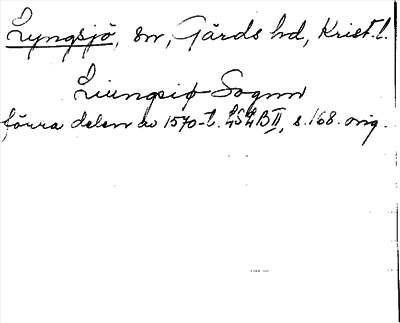 Lyngsjö, sn, Gärds hd, Krist. l.
Liungsiø Sognn
förra delen av 1570-t. LSLB II, s. 168. orig.